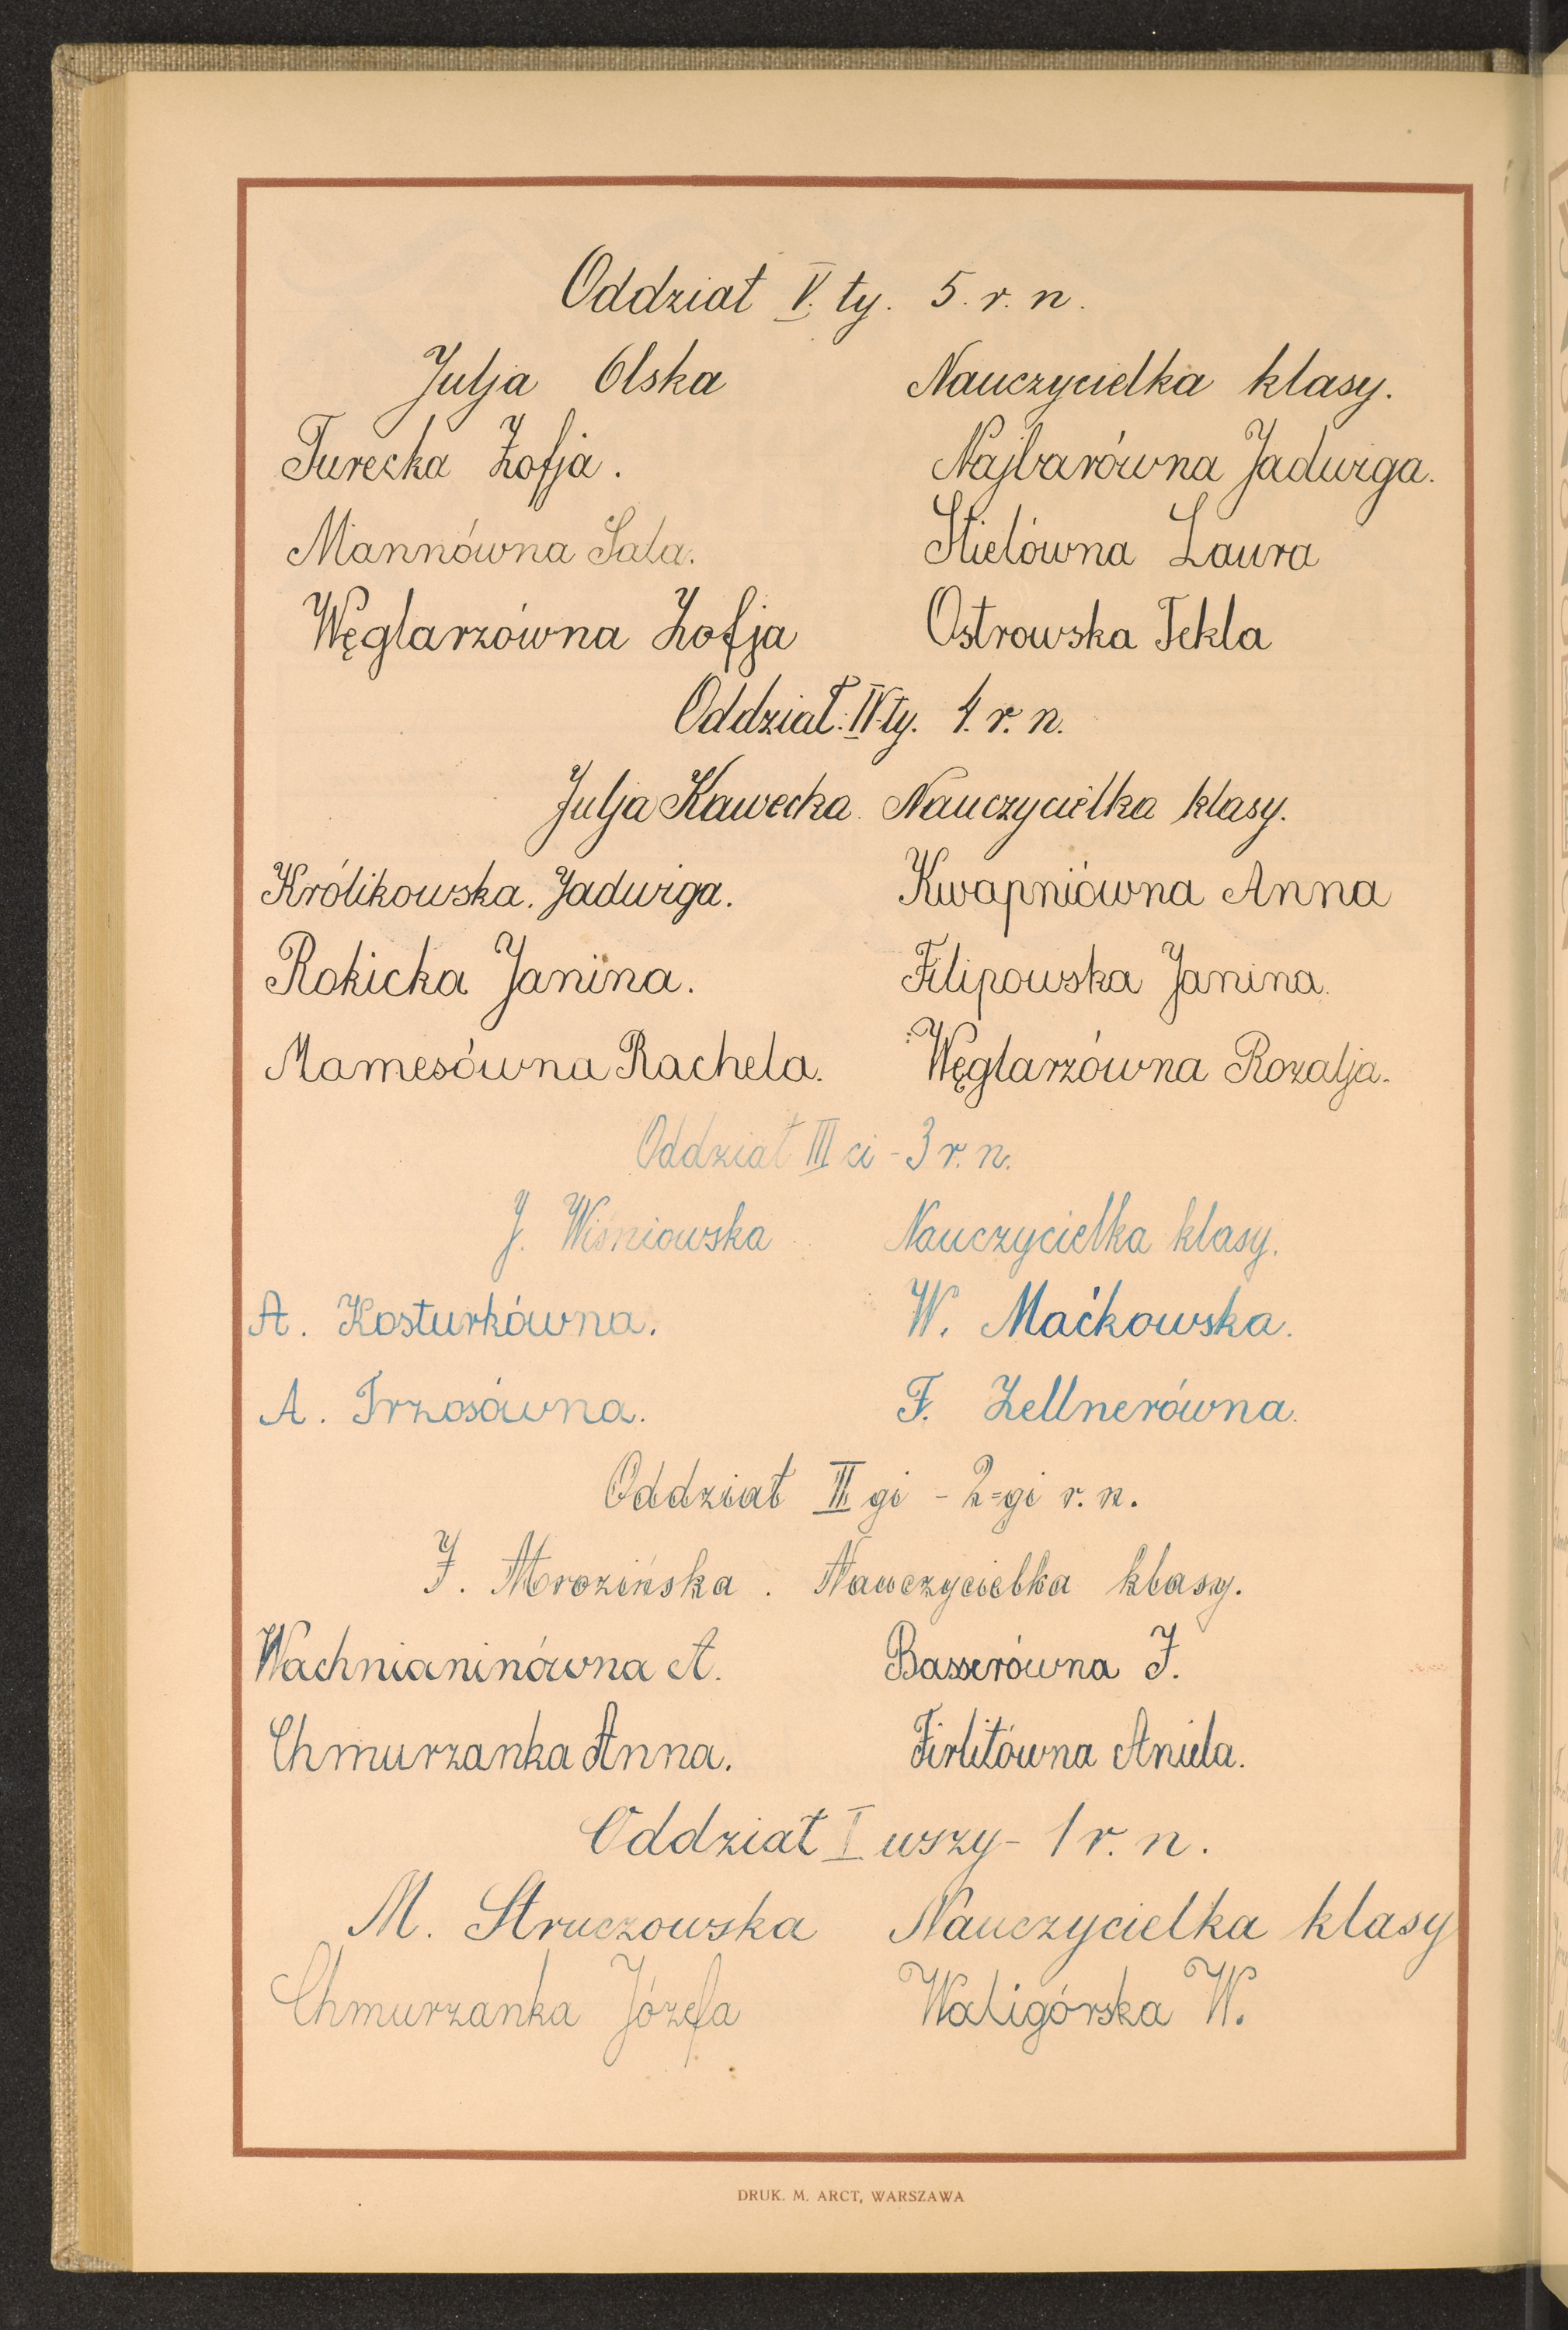 Oddział V. ty. 5. r. n.
Julja Olska Nauczycielka klasy.
Turecka Zofja. Najbarówna Jadwiga.
Mannówna Sala. Stielówna Laura
Węglarzówna Zofja Ostrowska Tekla
Oddział. IV-ty. 4. r. n.
Julja Kawecka. Nauczycielka klasy.
Królikowska. Jadwiga. Kwapniówna Anna
Rokicka Janina. Filipowska Janina.
Mamesówna Rachela. Węglarzówna Rozalja.
Oddział III ci - 3 r. n.
J. Wiśniowska Nauczycielka klasy.
A. Kosturkówna. W. Maćkowska.
A. Trzosówna. F. Zellnerówna.
Oddział II gi - 2=gi r. n.
J. Mrozińska. Nauczycielka klasy.
Wachnianinówna A. Basserówna J.
Chmurzanka Anna. Firlitówna Aniela.
Oddział I wszy - 1 r. n.
M. Struczowska Nauczycielka klasy
Chmurzanka Józefa Waligórska W.
DRUK. M. ARCT, WARSZAWA